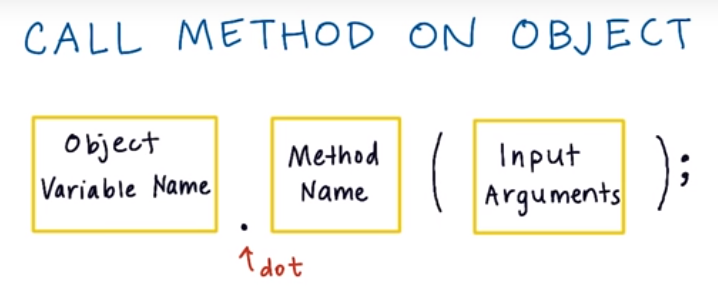 CALL METHOD ON OBJECT
Object
Variable Name
.
Method
Name
(
Input
Arguments
);
↑dot